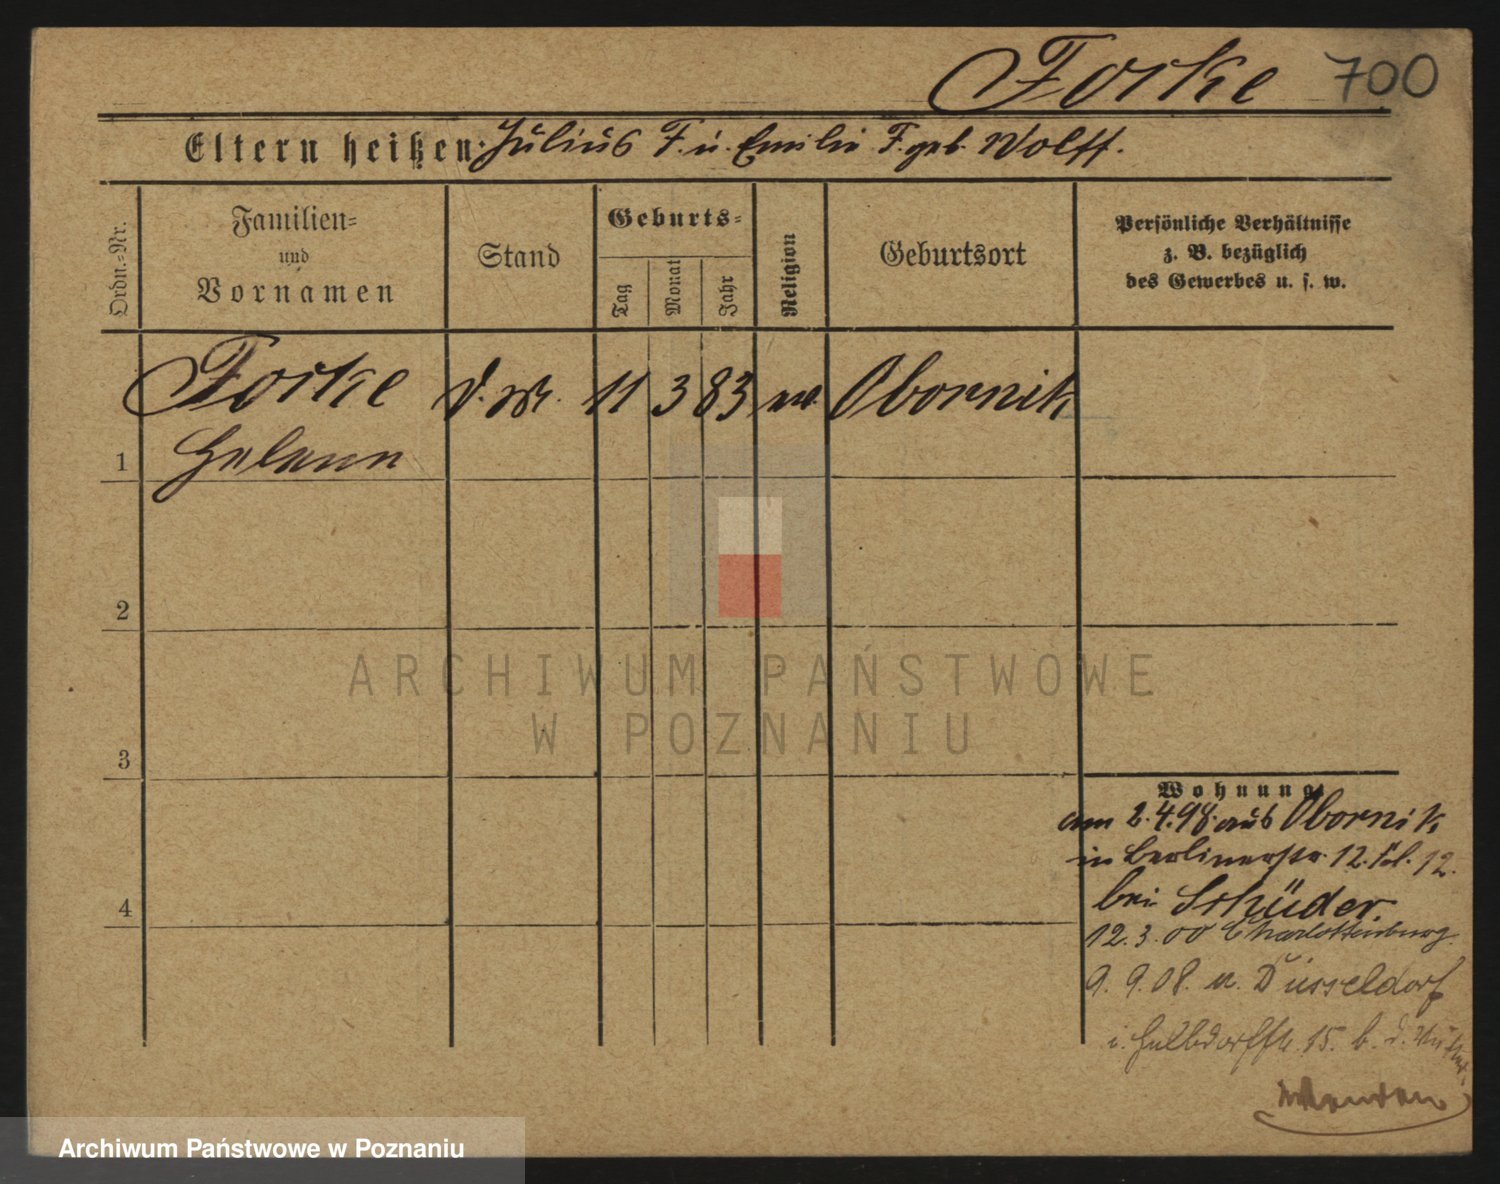 Forke 700
Eltern heißen: Julius F. u. Emilie F. geb. Wolff.
Ordn.-Nr.
Familien-
und
Vornamen
Stand
Geburts-
Tag
Monat
Jahr
Religion
Geburtsort
Persönliche Verhältnisse
z. B. bezüglich
des Gewerbes u. s. w.
Forke 11 3 83 ev. Obornik
1 Helene
2
ARCHIWUM PAŃSTWOWE
W POZNANIU
3
Wohnung
am 2.4.98. aus Obornik
in Berlinerstr. 12. 12.
bei Schüder.
12.3.00 Charlottenburg
4
9.9.08. Düsseldorf
i. 15. b. d. Mutter
Archiwum Państwowe w Poznaniu